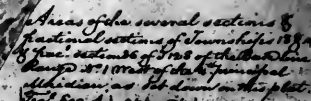 Areas of the several sections &
fractional sections of Townships 18 &
of the Base Line
Range No. 1 West of the principal
Meridian, as set down on this plat